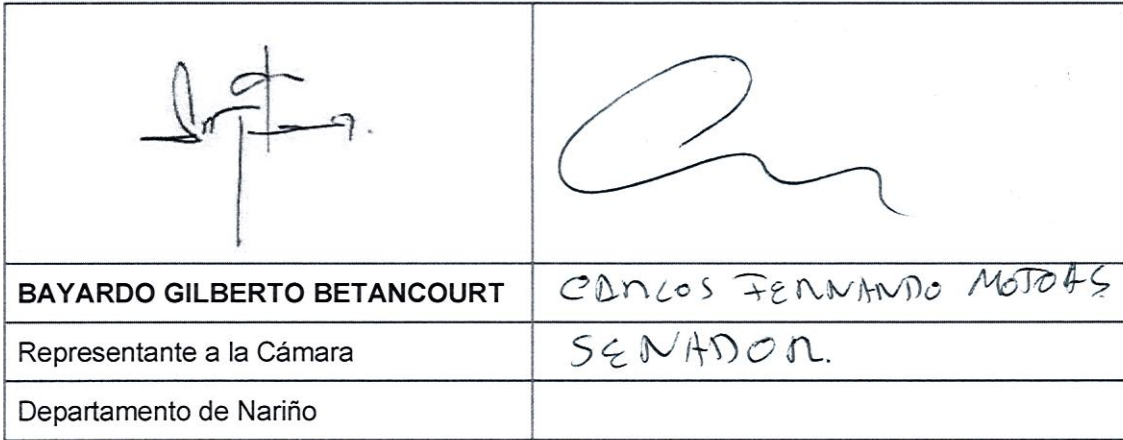 BAYARDO GILBERTO BETANCOURT
CARLOS FERNANDO MOTOAS
Representante a la Cámara
SENADOR.
Departamento de Nariño